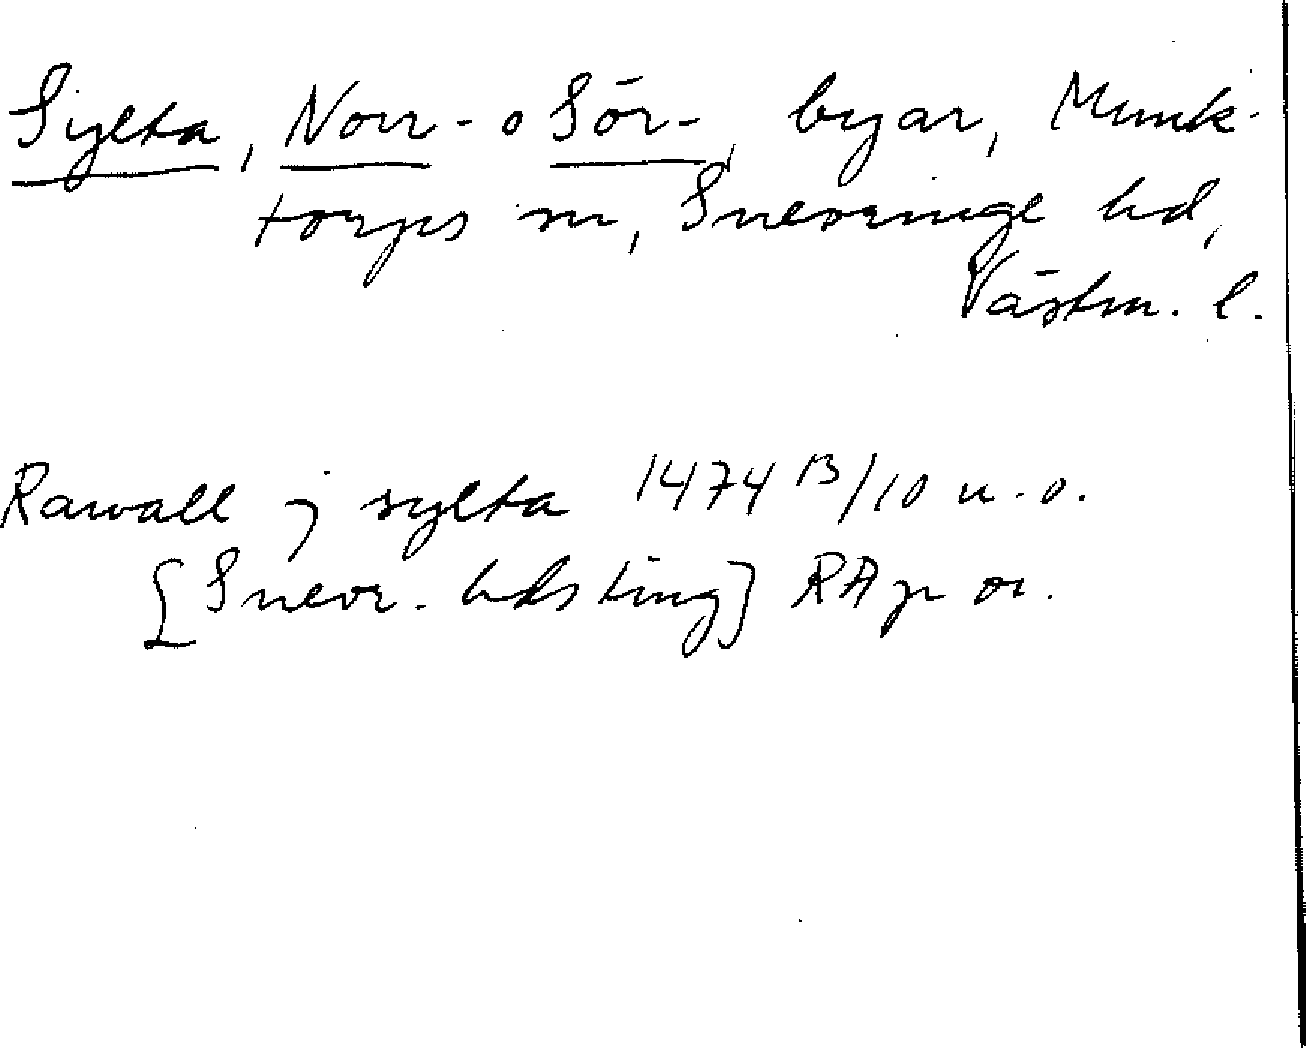 Sylta, Norr- o Sör-, byar, Munk-
torps sn, Snevringe hd,
Västm. l.
Rawall j sylta 1474 13/10 u. o.
[Snevr. hds ting] RAp or.